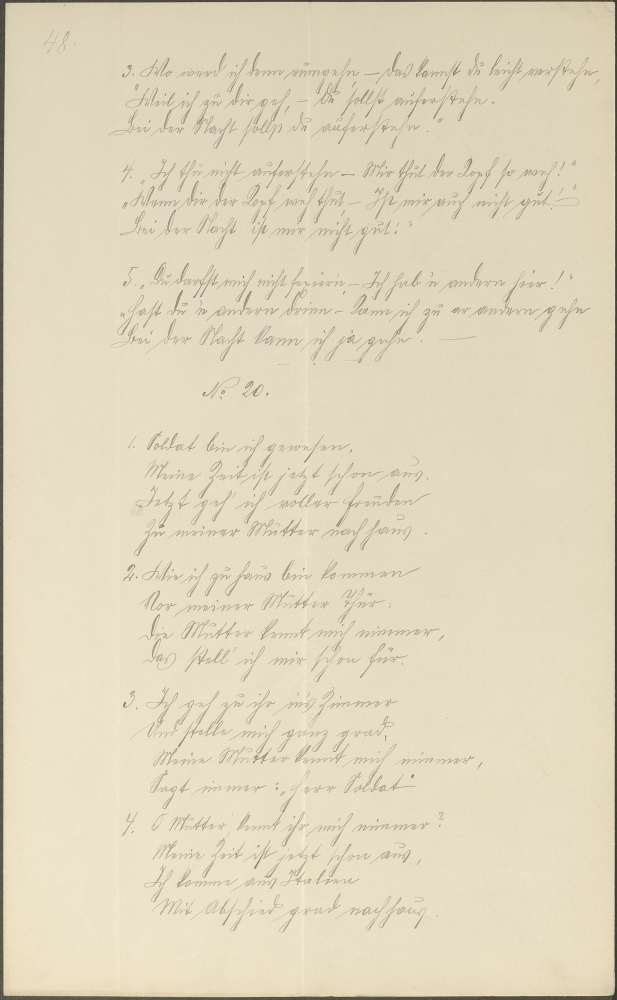 48.
3. Wo werd ich denn rumgehn, – das kannst du leicht verstehn,
"Weil ich zu dir geh, – Du sollst auferstehn.
Bei der Nacht sollst du auferstehn."
4. "Ich thu nicht auferstehn – Mir thut der Kopf so weh!"
"Wenn dir der Kopf weh thut, – Ist mir auch nicht gut!"
"Bei der Nacht ist mir nicht gut!"
5. "Du darfst mich nicht – Ich hab 'n andern hier!"
"Hast du 'n andern drinn – Kann ich zu ar andern gehn
Bei der Nacht kann ich ja gehn. –
No 20.
1. Soldat bin ich gewesen,
Meine Zeit ist jetzt schon aus.
Jetzt geh' ich voller Freuden
Zu meiner Mutter nach haus.
2. Wie ich zu haus bin kommen
Vor meiner Mutter Thür.
Die Mutter kennt mich nimmer,
Das stell' ich mir schon für.
3. Ich geh zu ihr in's Zimmer
Und stelle mich ganz grad,
Meine Mutter kennt mich nimmer,
Sagt immer: "Herr Soldat"
4. O Mutter, kennt ihr mich nimmer?
Meine Zeit ist jetzt schon aus,
Ich komme aus Italien
Mit Abschied grad nachhaus.